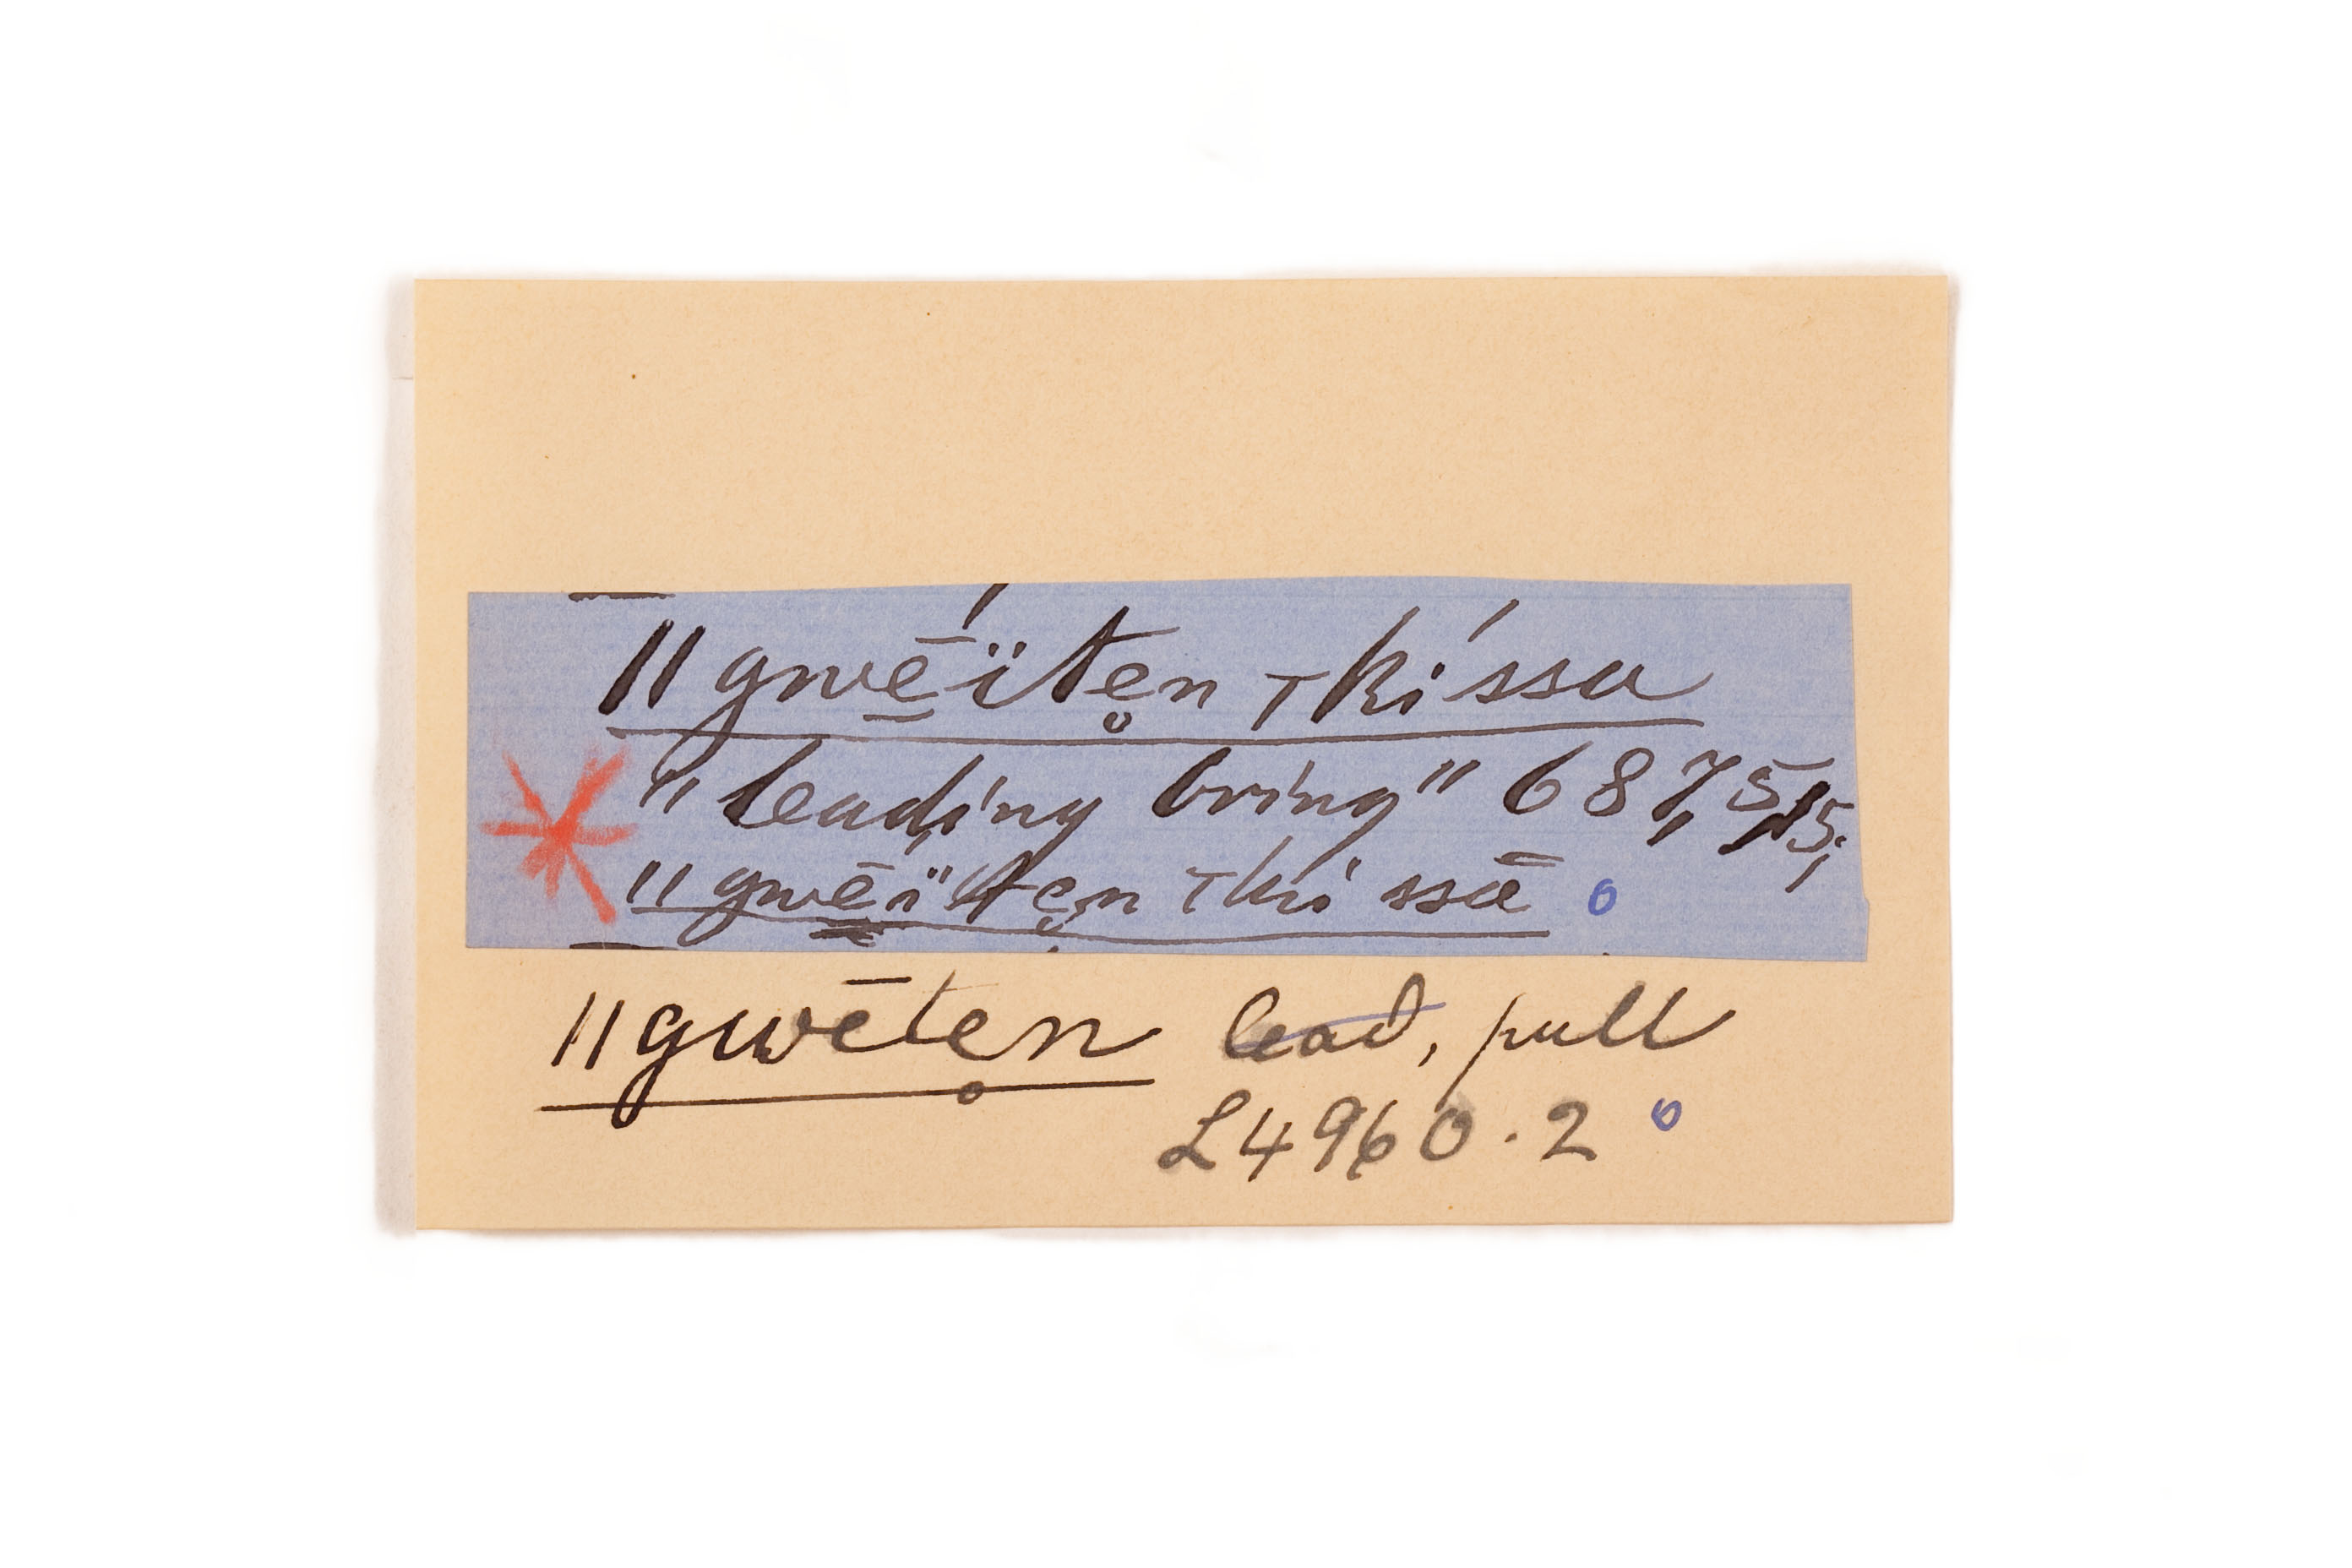 ǁgwē̱ḯte̥n ⊤kíssa
"leading bring" 687, 5,15;
ǁgwē̱ïte̥n ⊤ki ssā
ǁgwēte̥n lead, pull
L4960.2